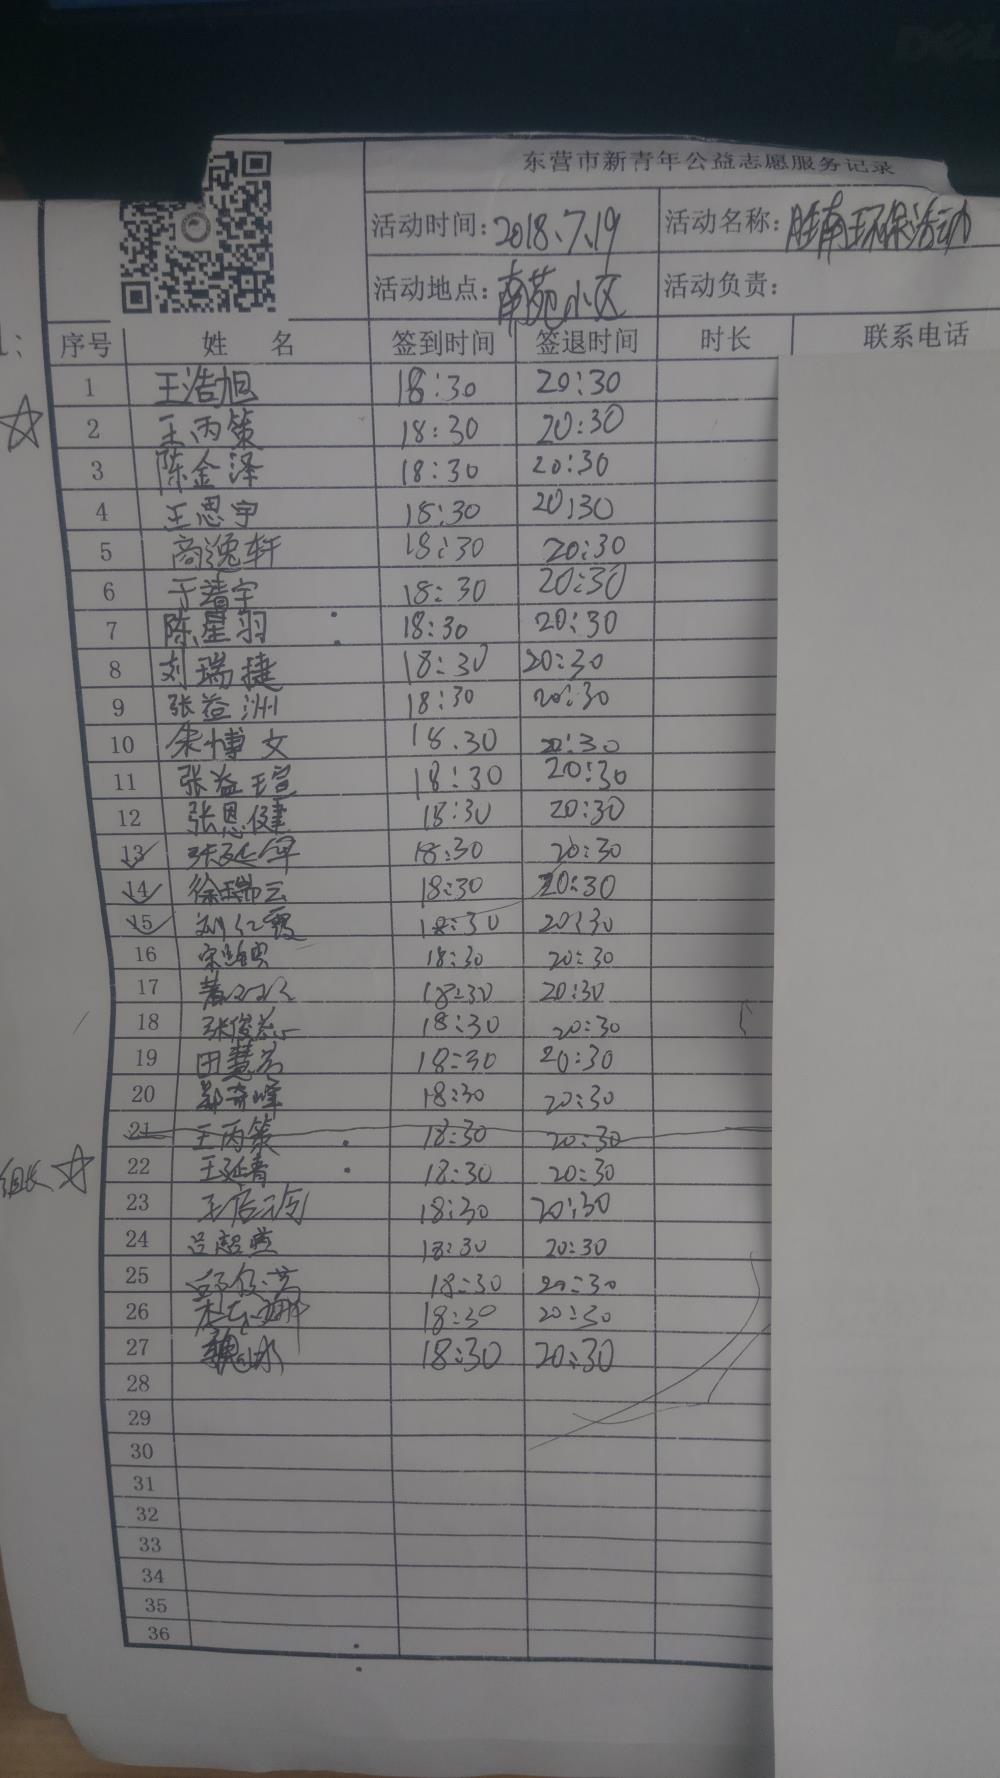 DELL
东营市新青年公益志愿服务记录
活动时间: 2018.7.19 活动名称: 胜南环保活动
活动地点: 南苑小区 活动负责:
序号 姓 名 签到时间 签退时间 时长 联系电话
1 王浩旭 18:30 20:30
2 王丙策 18:30 20:30
3 陈金泽 18:30 20:30
4 王思宇 18:30 20:30
5 商逸轩 18:30 20:30
6 于靖宇 18:30 20:30
7 陈星羽 18:30 20:30
8 刘瑞捷 18:30 20:30
9 张益洲 18:30 20:30
10 朱博文 18.30 20:30
11 张益瑄 18:30 20:30
12 张恩健 18:30 20:30
13 张延军 18:30 20:30
14 徐瑞云 18:30 20:30
15 刘仁霞 18:30 20:30
16 18:30 20:30
17 18:30 20:30
18 张俊 18:30 20:30
19 田慧芳 18:30 20:30
20 郭奇峰 18:30 20:30
21 王丙策 18:30 20:30
组长 22 王延青 18:30 20:30
23 18:30 20:30
24 吕超燕 18:30 20:30
25 18:30 20:30
26 18:30 20:30
27 魏冰 18:30 20:30
28
29
30
31
32
33
34
35
36